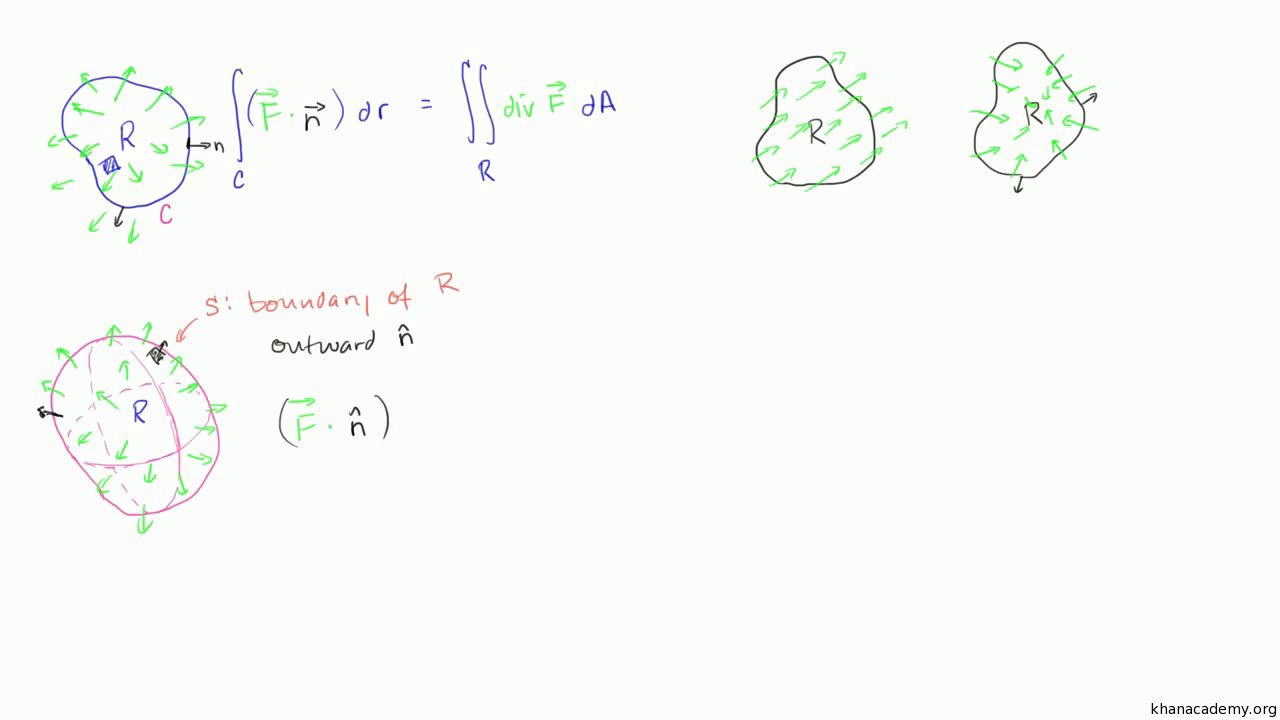 R
n
C
∫_C (F⃗ · n⃗) dr = ∬_R div F⃗ dA
R
R
S: boundary of R
outward n̂
R
(F⃗ · n̂)
khanacademy.org